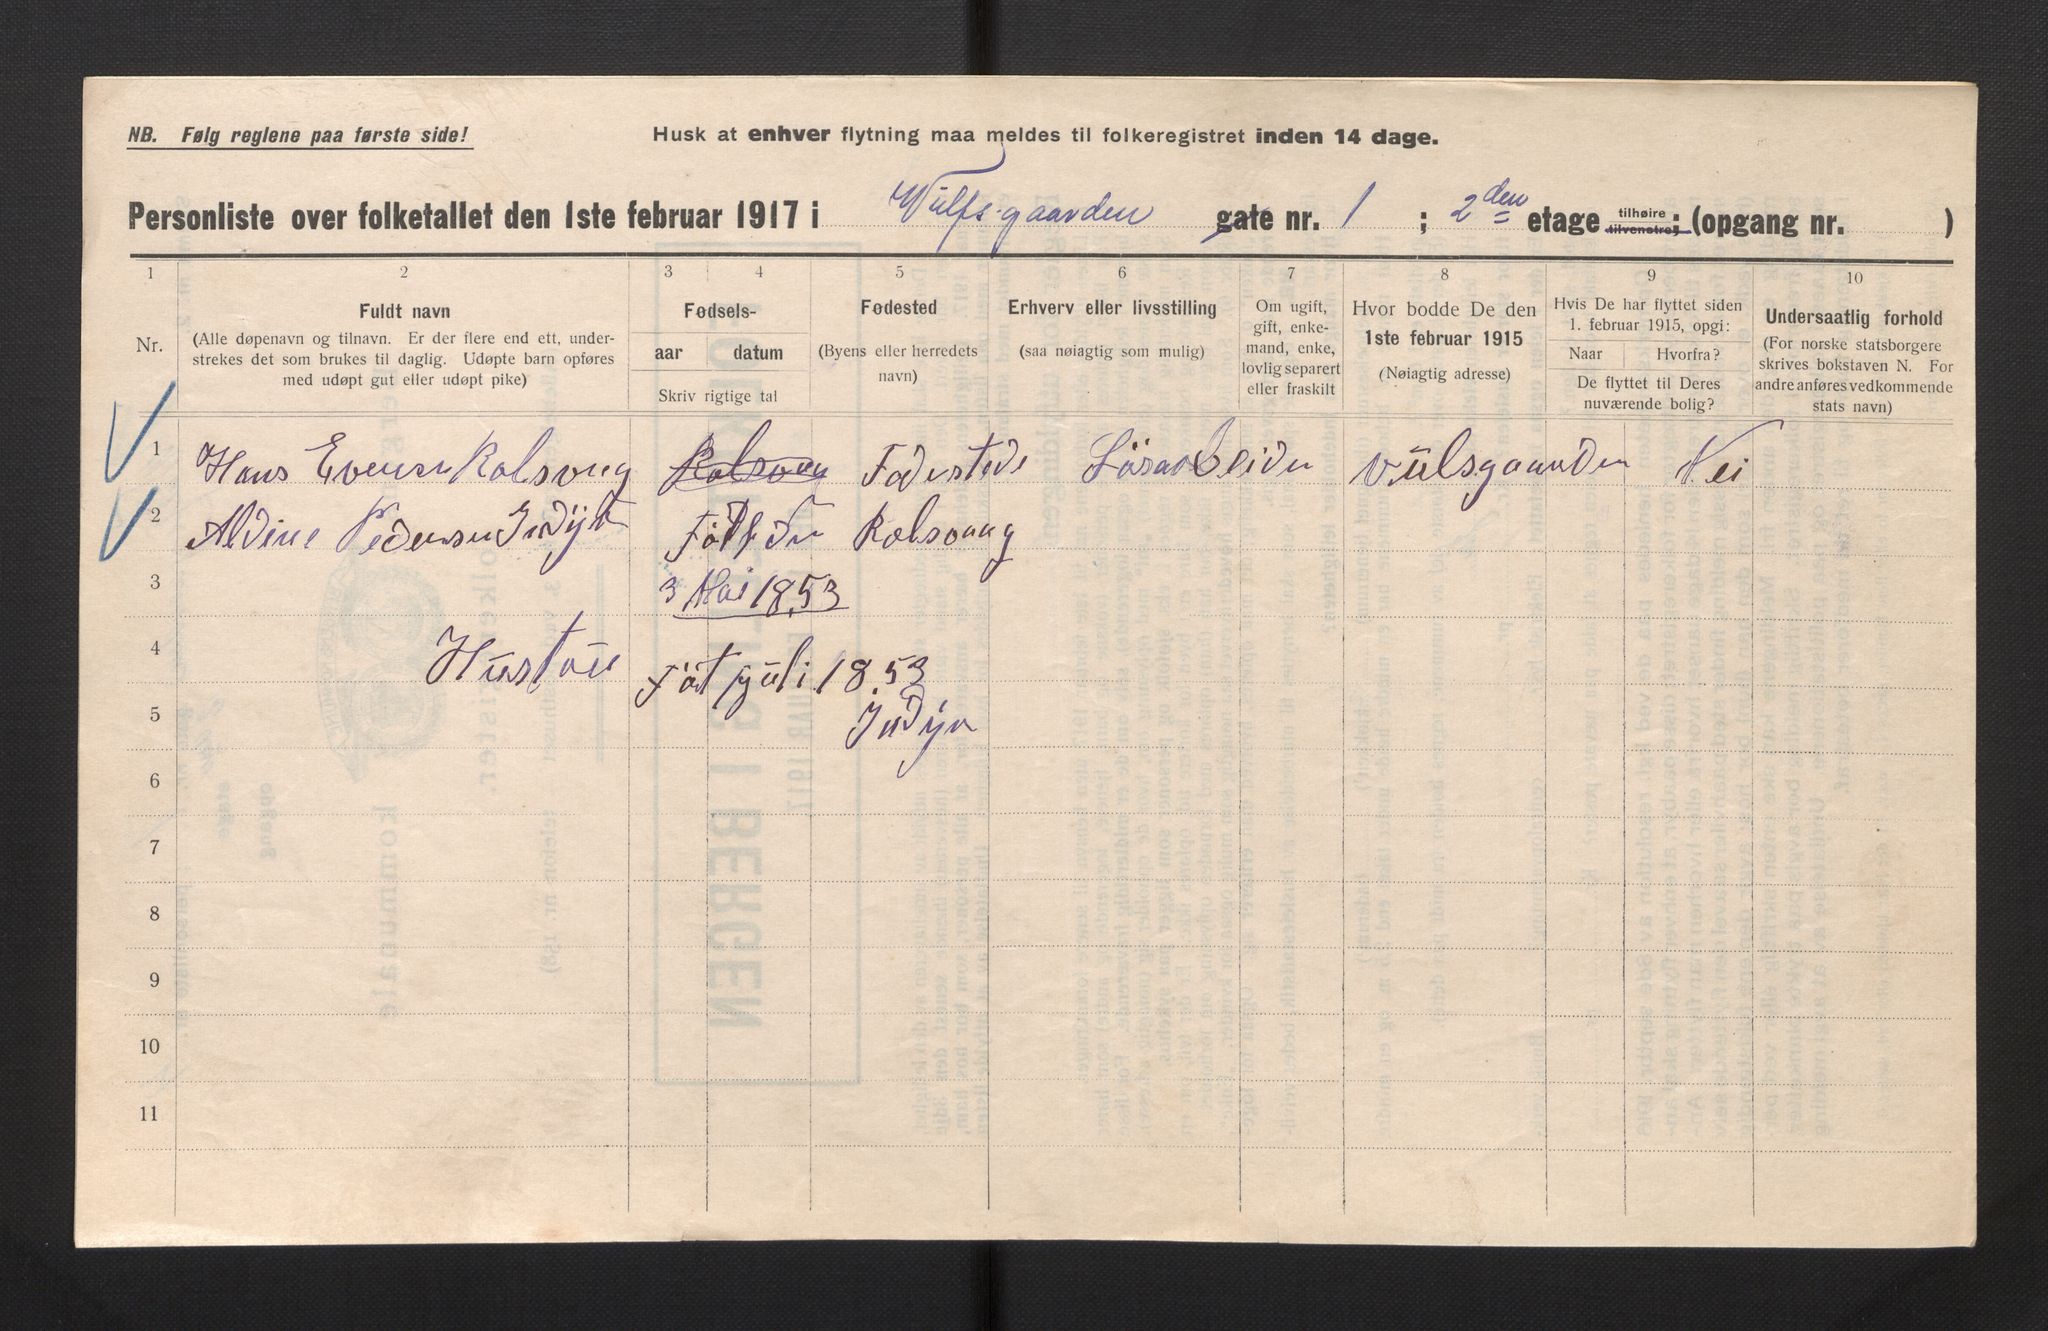 NB. Følg reglene paa første side!
Husk at enhver flytning maa meldes til folkeregistret inden 14 dage.
Personliste over folketallet den 1ste februar 1917 i Wulfs-gaarden gate nr. 1 ; 2den etage tilhøire tilvenstre; (opgang nr. )
1 2 3 4 5 6 7 8 9 10
Nr.
Fuldt navn
(Alle døpenavn og tilnavn. Er der flere end ett, under-
strekes det som brukes til daglig. Udøpte barn opføres
med udøpt gut eller udøpt pike)
Fødsels-
aar datum
Skriv rigtige tal
Fødested
(Byens eller herredets
navn)
Erhverv eller livsstilling
(saa nøiagtig som mulig)
Om ugift,
gift, enke-
mand, enke,
lovlig separert
eller fraskilt
Hvor bodde De den
1ste februar 1915
(Nøiagtig adresse)
Hvis De har flyttet siden
1. februar 1915, opgi:
Naar Hvorfra?
De flyttet til Deres
nuværende bolig?
Undersaatlig forhold
(For norske statsborgere
skrives bokstaven N. For
andre anføres vedkommende
stats navn)
1 Hans Evensen Rolsvug Rolsvug Fodestede Lösarbeider Vülsgaarden Nei
2 Aldine Pedersen Indÿr
3 3 Mai 1853
4 Hustou Föt juli 1853
5 Indÿr
6
7
8
9
10
11